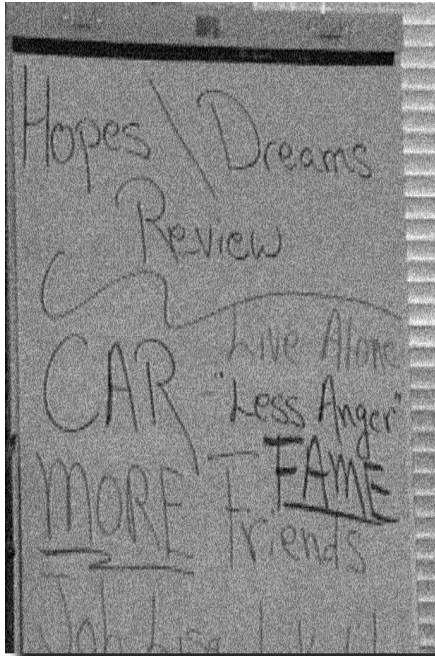 Hopes \ Dreams
Review
CAR
Live Alone
"Less Anger"
FAME
MORE Friends
Job